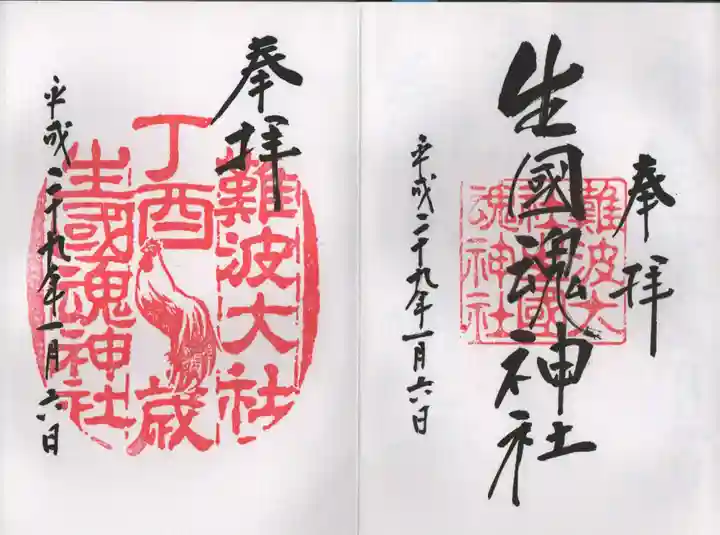 奉拝
生國魂神社
難波大
社生國
魂神社
平成二十九年一月六日
奉拝
難波大社
丁酉歳
生國魂神社
平成二十九年一月六日